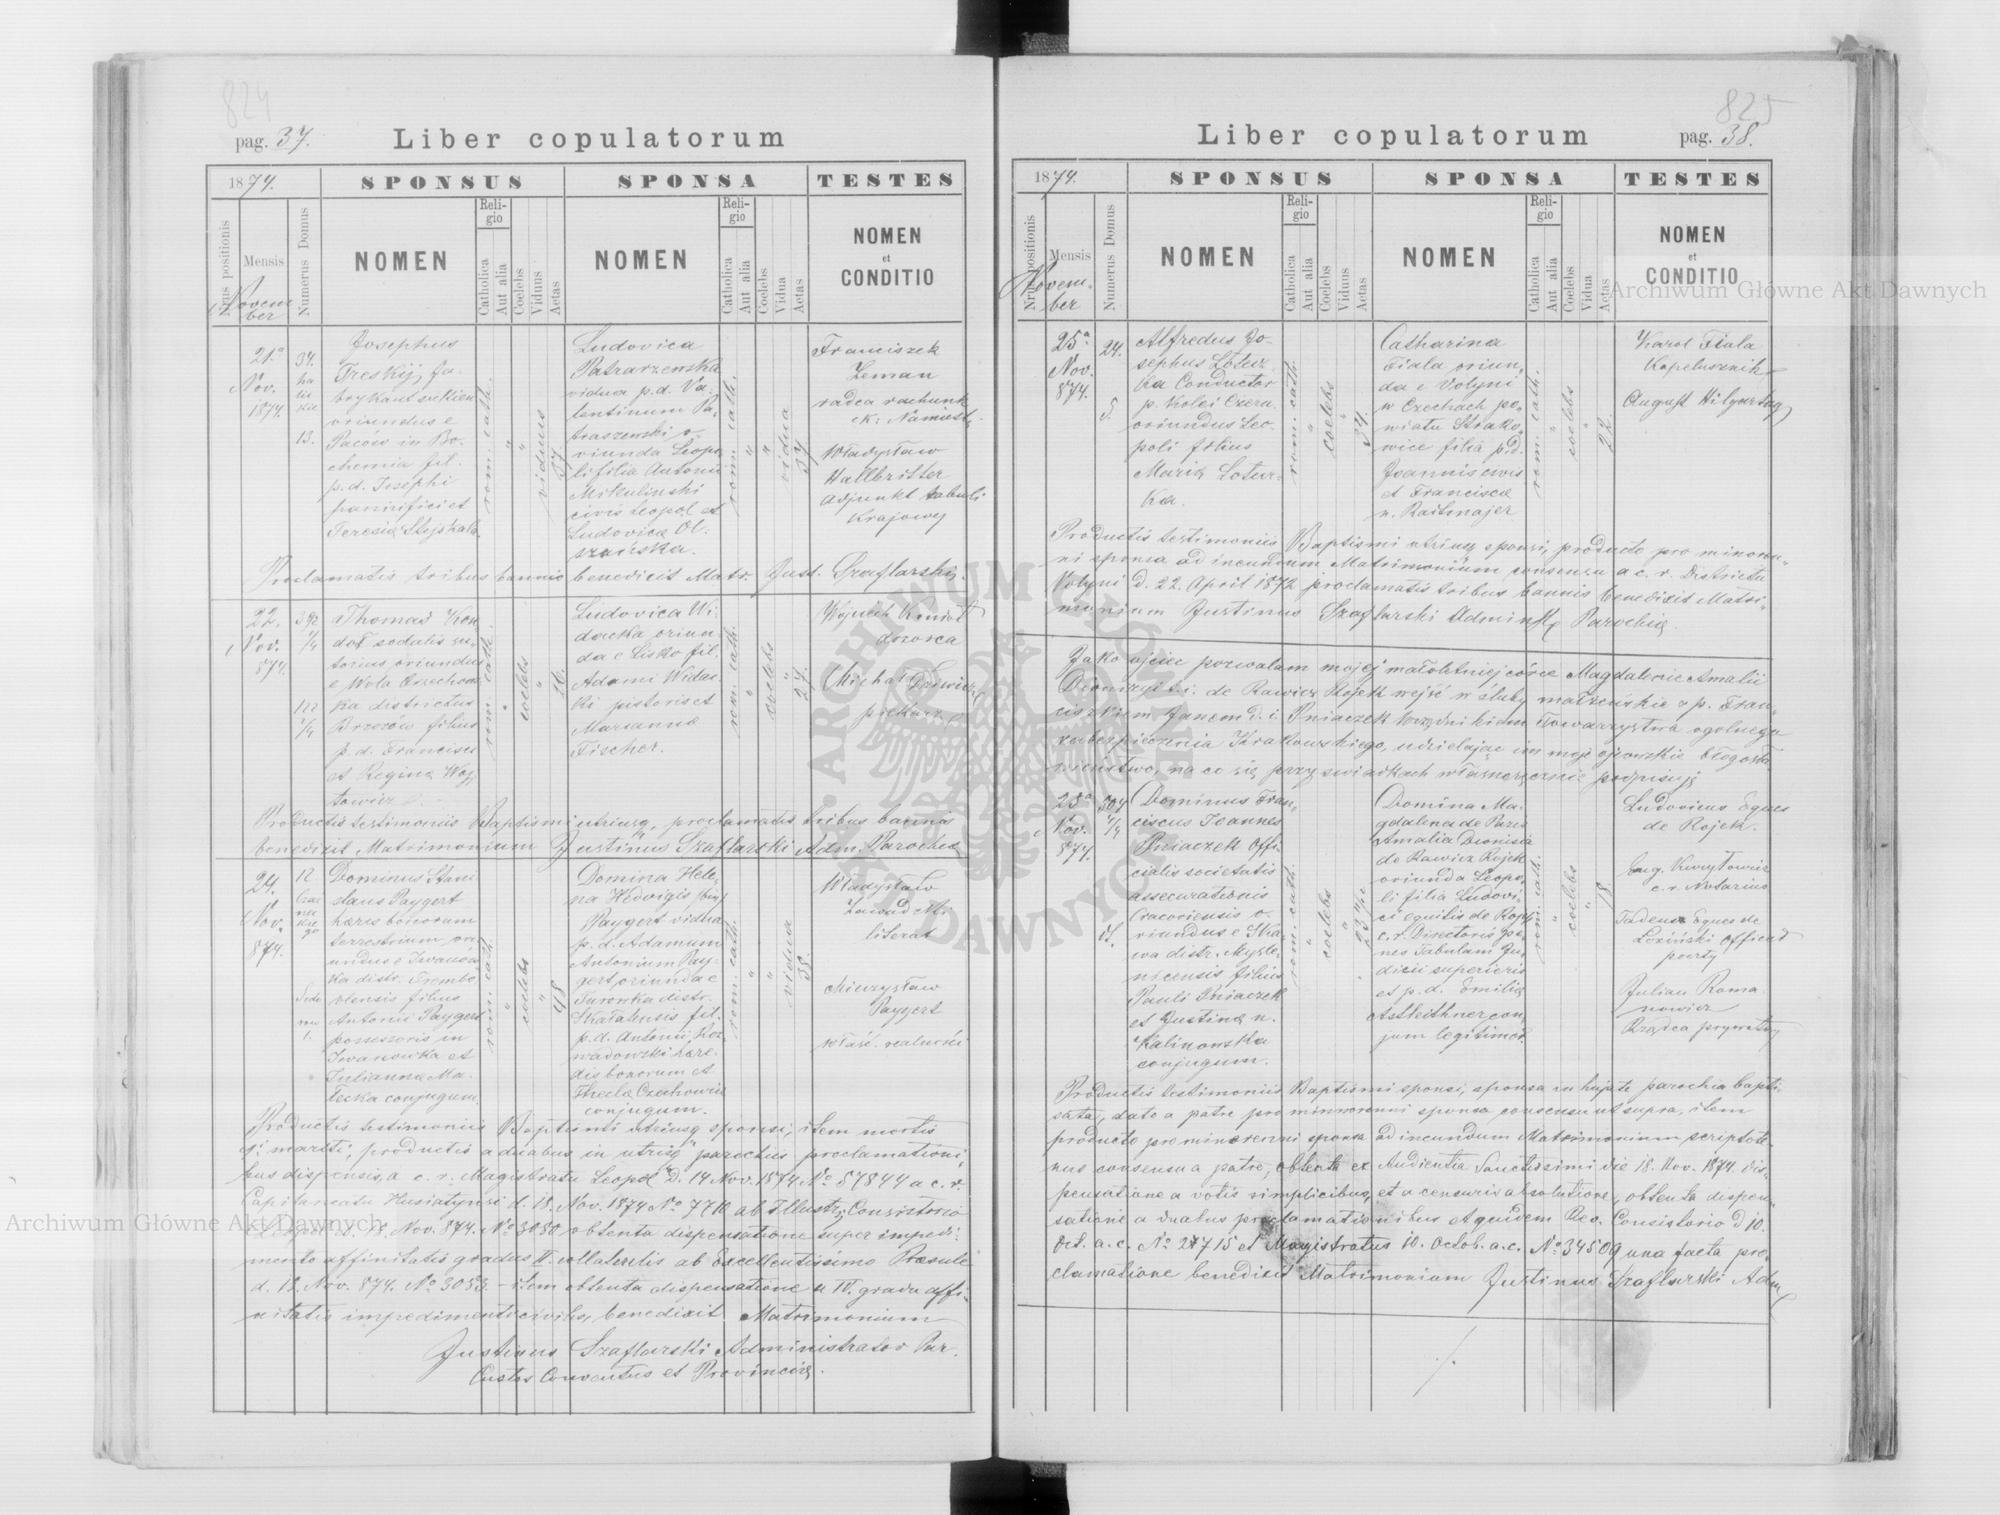 824
pag. 37.
Liber copulatorum
1874.
SPONSUS
SPONSA
TESTES
Nrus positionis
Mensis
Novem
ber
Numerus Domus
NOMEN
Religio
Catholica
Aut alia
Coelebs
Viduus
Aetas
NOMEN
Religio
Catholica
Aut alia
Coelebs
Vidua
Aetas
NOMEN
et
CONDITIO
21.a
Nov.
1874
34.
13.
Josephus
Treskij, fa-
brykant sukien
oriundus e
Paców in Bo-
chemia fil.
p. d. Josephi
pannificis et
Teresiæ Stejskala
rom. cath.
viduus
37
Ludovica
Patrarzewska
vidua p. d. Va-
lentinum Pa-
traszewski o-
riunda Leopo-
li filia Antonii
Mikulinski
civis Leopol et
Ludovica Ol-
szańska.
rom. cath.
vidua
37
Franciszek
Zeman
radca rachunk
ck. Namiest.
Władysław
Hallbritter
adjunkt tabuli
Krajowej
Proclamatis tribus bannis benedixit Matr. Just. Szaflarski.
22.
Nov.
874.
Thomas Kon
dot sodalis su-
torius oriundus
e Wola Orzechow
ka districtus
Brzozów filius
p. d. Francisci
et Reginæ Woj
towicz
rom. cath.
coelebs
26.
Ludovica Wi-
dacka oriun-
da e Lisko fil.
Adami Widac-
ki pistoris et
Marianna
Fischer.
rom. cath.
coelebs
27.
Wojciech
dozorca
Michał
piekarz
Productis testimoniis Baptismi utriusq, proclamatis tribus bannis
benedixit Matrimonium Justinus Szaflarski Adm. Parochiæ
24.
Nov.
874.
12
Dominus Stani
slaus Paygert
hæres bonorum
terrestrium ori-
undus e Iwanów
ka distr. Trembo
wlensis filius
Antonii Paygert
possessoris in
Iwanowka et
Julianna Ma-
łecka conjugum.
rom. cath.
coelebs
48
Domina Hele-
na Hedvigis
Paygert vidua
p. d. Adamum
Antonium Pay-
gert, oriunda e
Turowka distr.
Skałatensis fil.
p. d. Antonii Koz
wadowski hære-
dis bonorum et
Theclæ Czechowicz
conjugum.
rom. cath.
vidua
38.
Władysław
Zawadzki
literat
Mieczysław
Paygert
właść. realności
Productis testimoniis Baptismi utriusq sponsi, item mortis
1i mariti, productis a duabus in utrisq parochiis proclamationi-
bus dispensis, a c. r. Magistratu Leopol D. 14 Nov. 1874 No 57844 a c. r.
Capitaneatu Husiatynsi d. 18. Nov. 1874 No 7710 ab Illustr. Consistorio
Leopol d. 18. Nov. 874. No 3080 obtenta dispensatione super impedi-
mento affinitatis gradus II collateralis ab Excellentissimo Præsule
d. 12. Nov. 874. No 3083 - item obtenta dispensatione a IV. gradu affi-
nitatis impedimenti civilis, benedixit Matrimonium
Justinus Szaflarski Administrator Par.
Custos Conventus et Provinciæ.
825
Liber copulatorum
pag. 38.
1874.
SPONSUS
SPONSA
TESTES
Nrus positionis
Mensis
Novem-
ber
Numerus Domus
NOMEN
Religio
Catholica
Aut alia
Coelebs
Viduus
Aetas
NOMEN
Religio
Catholica
Aut alia
Coelebs
Vidua
Aetas
NOMEN
et
CONDITIO
25a
Nov.
874.
24.
5.
Alfredus Jo-
sephus Lotecz
ka Conductor
p. Kolei Czern
oriundus Leo-
poli filius
Maria Lotur-
ka.
rom. cath.
coelebs
34.
Catharina
Fiala oriun-
da e Volyni
w Czechach po-
wiatu Strako-
wice filia p. d.
Joannis civis
et Francisca
n. Raitmajer
rom. cath.
coelebs
22.
Karol Fiala
Kapelusznik
August
Productis testimoniis Baptismi utriusq sponsi, producto pro minoren-
ni sponsa ad incundum Matrimonium consensu a c. r. Districtu
Volyni d. 22. April 1872 proclamatis tribus bannis benedixit Matri-
monium Justinus Szaflarski Adminstr Parochiæ.
Jako ojciec pozwalam mojej małoletniej córce Magdalenie Amalii
Dionizyi t. i. de Rawicz Rojek wejść w śluby małżeńskie z p. Fran-
ciszkiem Janem d. i. Pniaczek Urzędnikiem Towarzystwa ogólnego
zabezpieczenia Krakowskiego, udzielając im moje ojcowskie błogosła-
wieństwo, na co się przy świadkach własnoręcznie podpisuję
25a
Nov.
874.
504
Dominus Fran-
ciscus Joannes
Pniaczek Offi-
cialis societatis
assecurationis
Cracoviensis o-
riundus e Ska-
wa distr. Myśle-
nicensis filius
Pauli Pniaczek
et Justina n.
Kalinowska
conjugum.
rom. cath.
coelebs
Domina Ma-
gdalena de Pazis
Amalia Dionisia
de Rawicz Rojek
oriunda Leopo-
li filia Ludovi-
ci equitis de Rojek
c. r. Directoris pe-
nes Tabulam Ju-
dicii superioris
et p. d. Emiliæ
Astleithner con-
jum legitimor.
rom. cath.
coelebs
18
Ludovicus Eques
de Rojek.
c. r. Notarius
Tadeus Eques de
Łoziński Official
poczty
Julian Roma
nowicz
Rządca prywatny
Productis testimoniis Baptismi sponsi, sponsa in hujate parochia bapti-
zata, dato a patre pro minorenni sponsa consensu ut supra, item
producto pro minorenni sponsa ad incundum Matrimonium scripto te-
nus consensu a patre, obtenta ex Audientia Sanctissimi die 18. Nov. 1874. dis-
pensatione a votis simplicibus, et a censuris absolutione, obtenta dispen-
satione a duabus proclamationibus et quidem Rev. Consistorio d 10.
Oct. a. c. No 2715 et Magistratus 10. Octob. a. c. No 34509 una facta pro-
clamatione benedixit Matrimonium Justinus Szaflarski Adm
Archiwum Główne Akt Dawnych
Archiwum Główne Akt Dawnych
ARCHIWUM GŁÓWNE AKT DAWNYCH